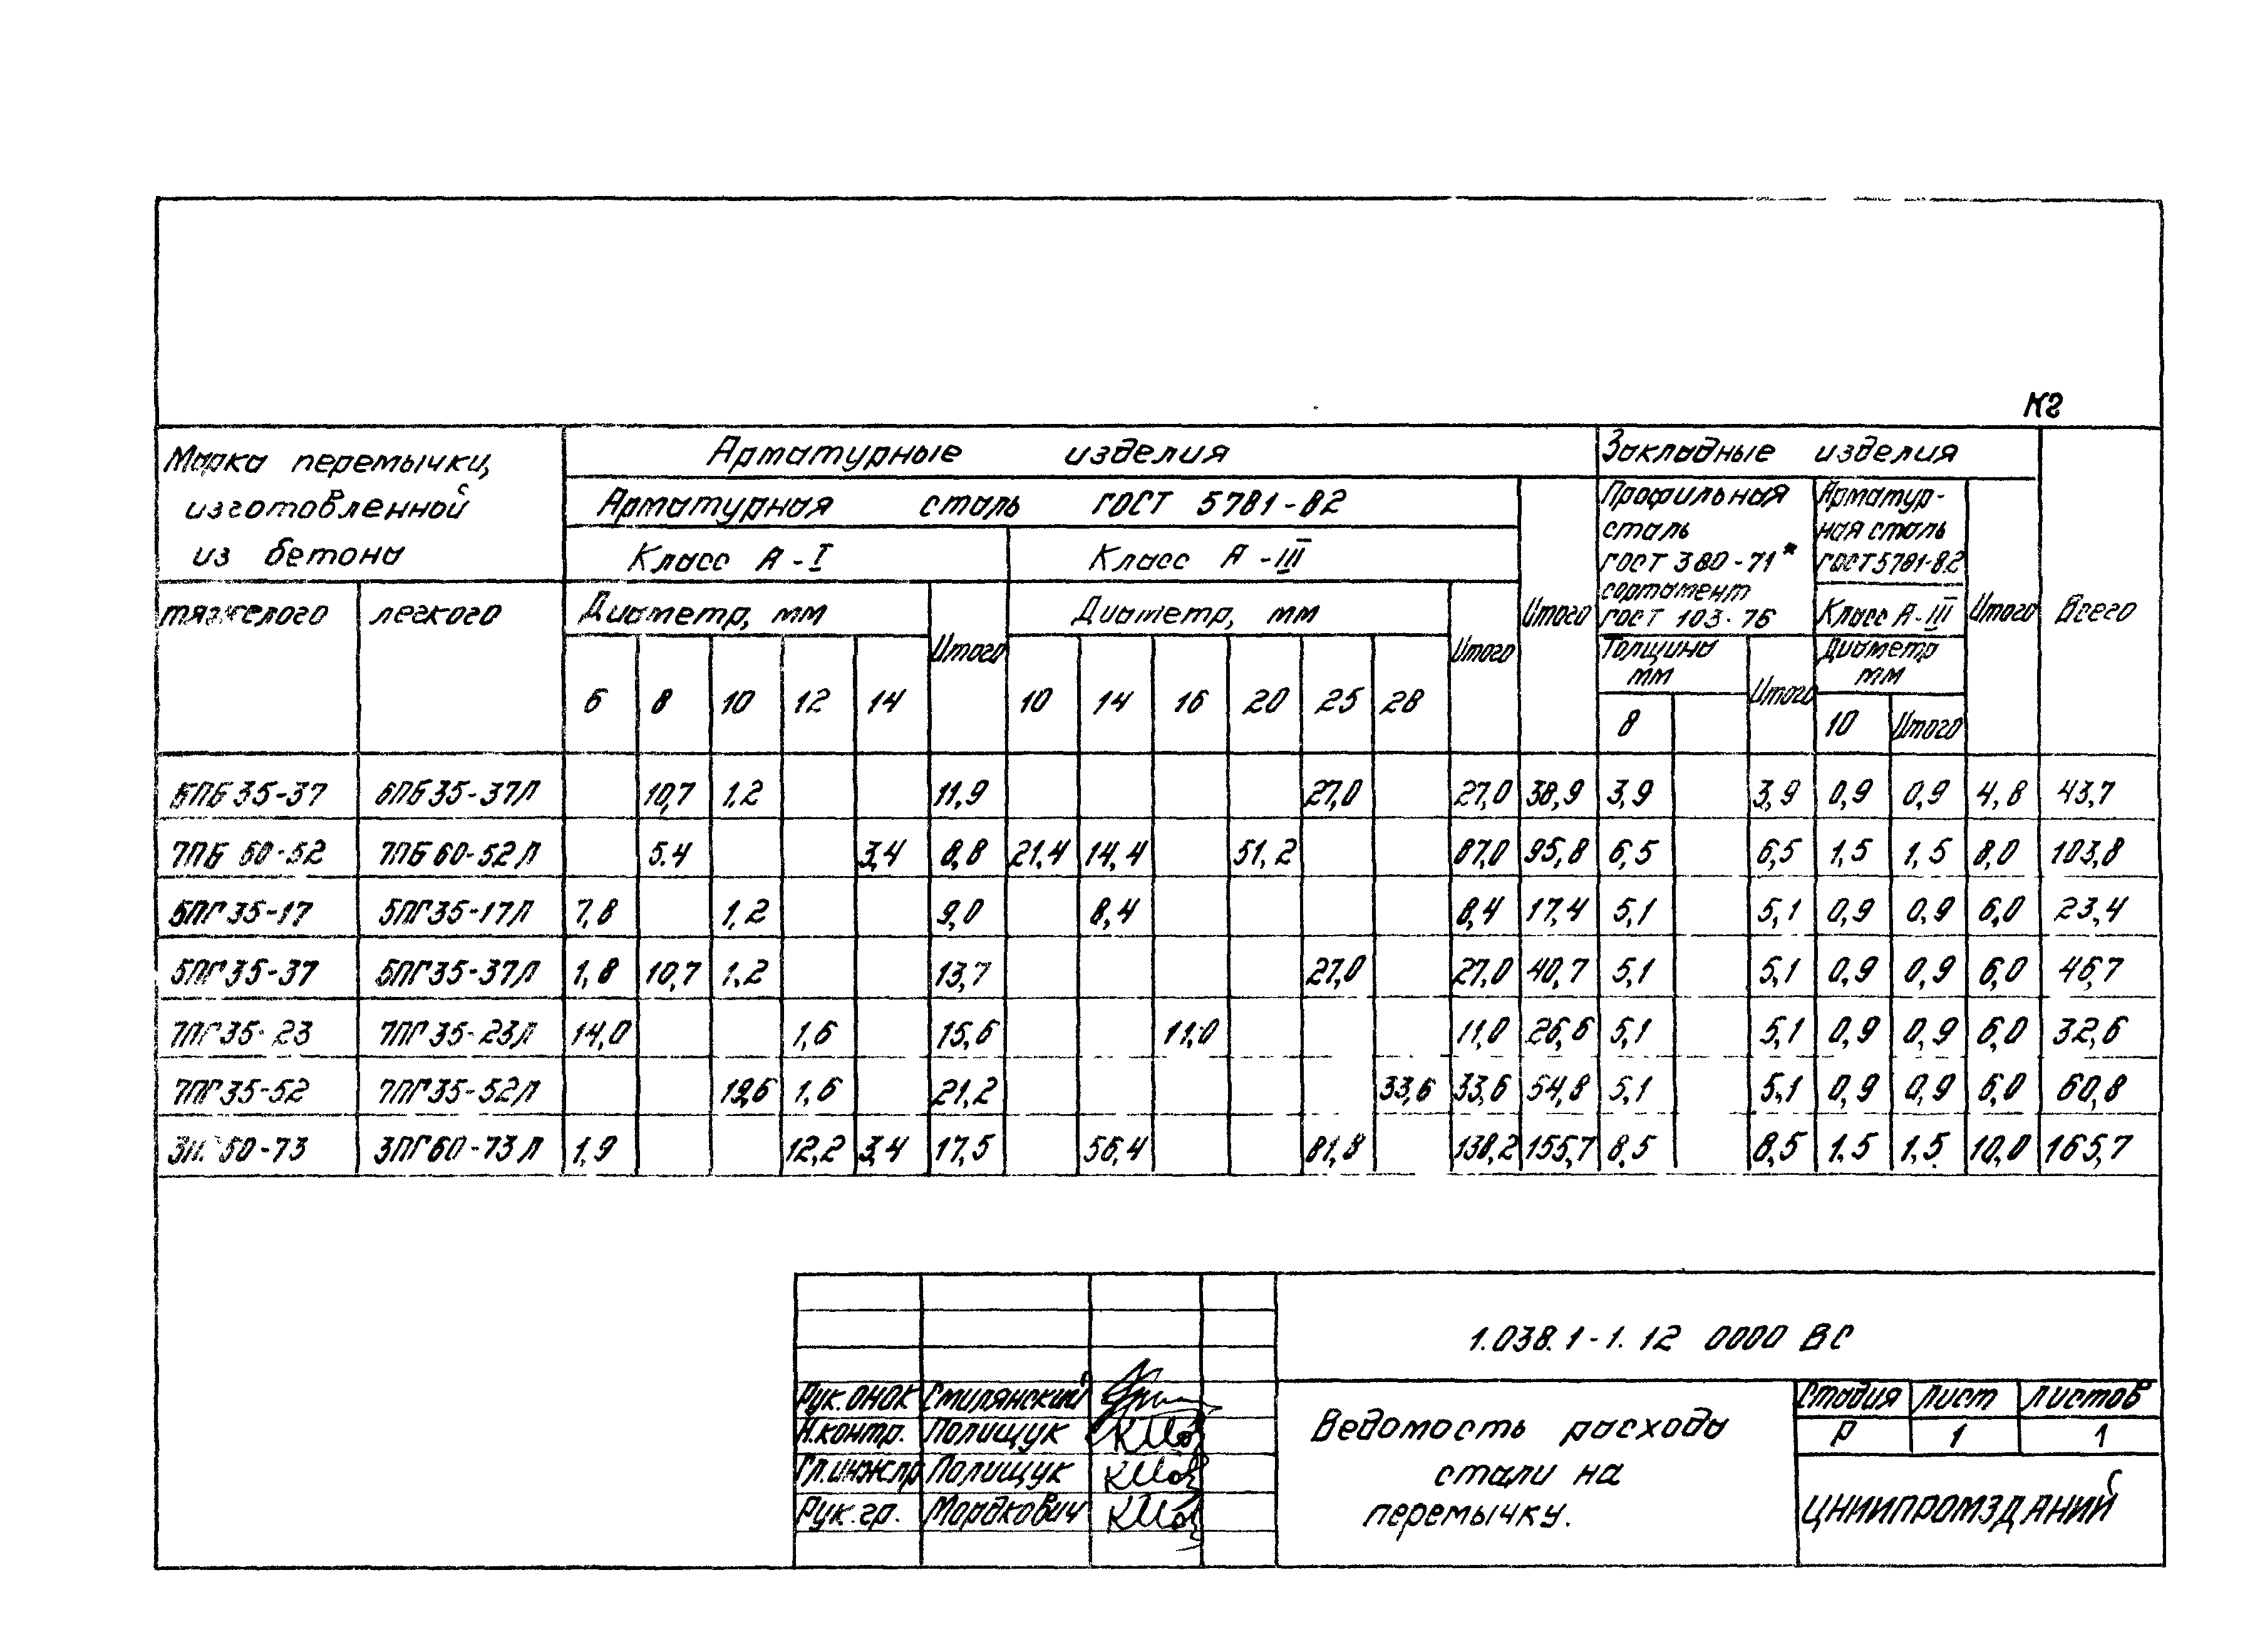 кг
Марка перемычки,
изготовленной
из бетона
Арматурные изделия
Закладные изделия
Арматурная сталь ГОСТ 5781-82
Класс А-I
Класс А-III
Профильная
сталь
ГОСТ 380-71*
сортамент
ГОСТ 103-76
Арматур-
ная сталь
ГОСТ 5781-82
Класс А-III
тяжелого легкого
Диаметр, мм Итого
Диаметр, мм Итого
Итого
Толщина
мм
Итого
Диаметр
мм
Итого
Всего
6 8 10 12 14 10 14 16 20 25 28 8 10 Итого
6ПБ35-37 6ПБ35-37Л 10,7 1,2 11,9 27,0 27,0 38,9 3,9 3,9 0,9 0,9 4,8 43,7
7ПБ 60-52 7ПБ60-52Л 5.4 3,4 8,8 21,4 14,4 51,2 87,0 95,8 6,5 6,5 1,5 1,5 8,0 103,8
5ПГ35-17 5ПГ35-17Л 7,8 1,2 9,0 8,4 8,4 17,4 5,1 5,1 0,9 0,9 6,0 23,4
5ПГ35-37 5ПГ35-37Л 1,8 10,7 1,2 13,7 27,0 27,0 40,7 5,1 5,1 0,9 0,9 6,0 46,7
7ПГ35-23 7ПГ35-23Л 14,0 1,6 15,6 11,0 11,0 26,6 5,1 5,1 0,9 0,9 6,0 32,6
7ПГ35-52 7ПГ35-52Л 19,6 1,6 21,2 33,6 33,6 54,8 5,1 5,1 0,9 0,9 6,0 60,8
3ПГ60-73 3ПГ60-73Л 1,9 12,2 3,4 17,5 56,4 81,8 138,2 155,7 8,5 8,5 1,5 1,5 10,0 165,7
1.038.1-1.12 0000 ВС
Рук. ОНОК Смилянский
Н.контр. Полищук
Гл.инж.пр Полищук
Рук.гр. Мордкович
Ведомость расхода
стали на
перемычку.
Стадия Лист Листов
Р 1 1
ЦНИИПРОМЗДАНИЙ